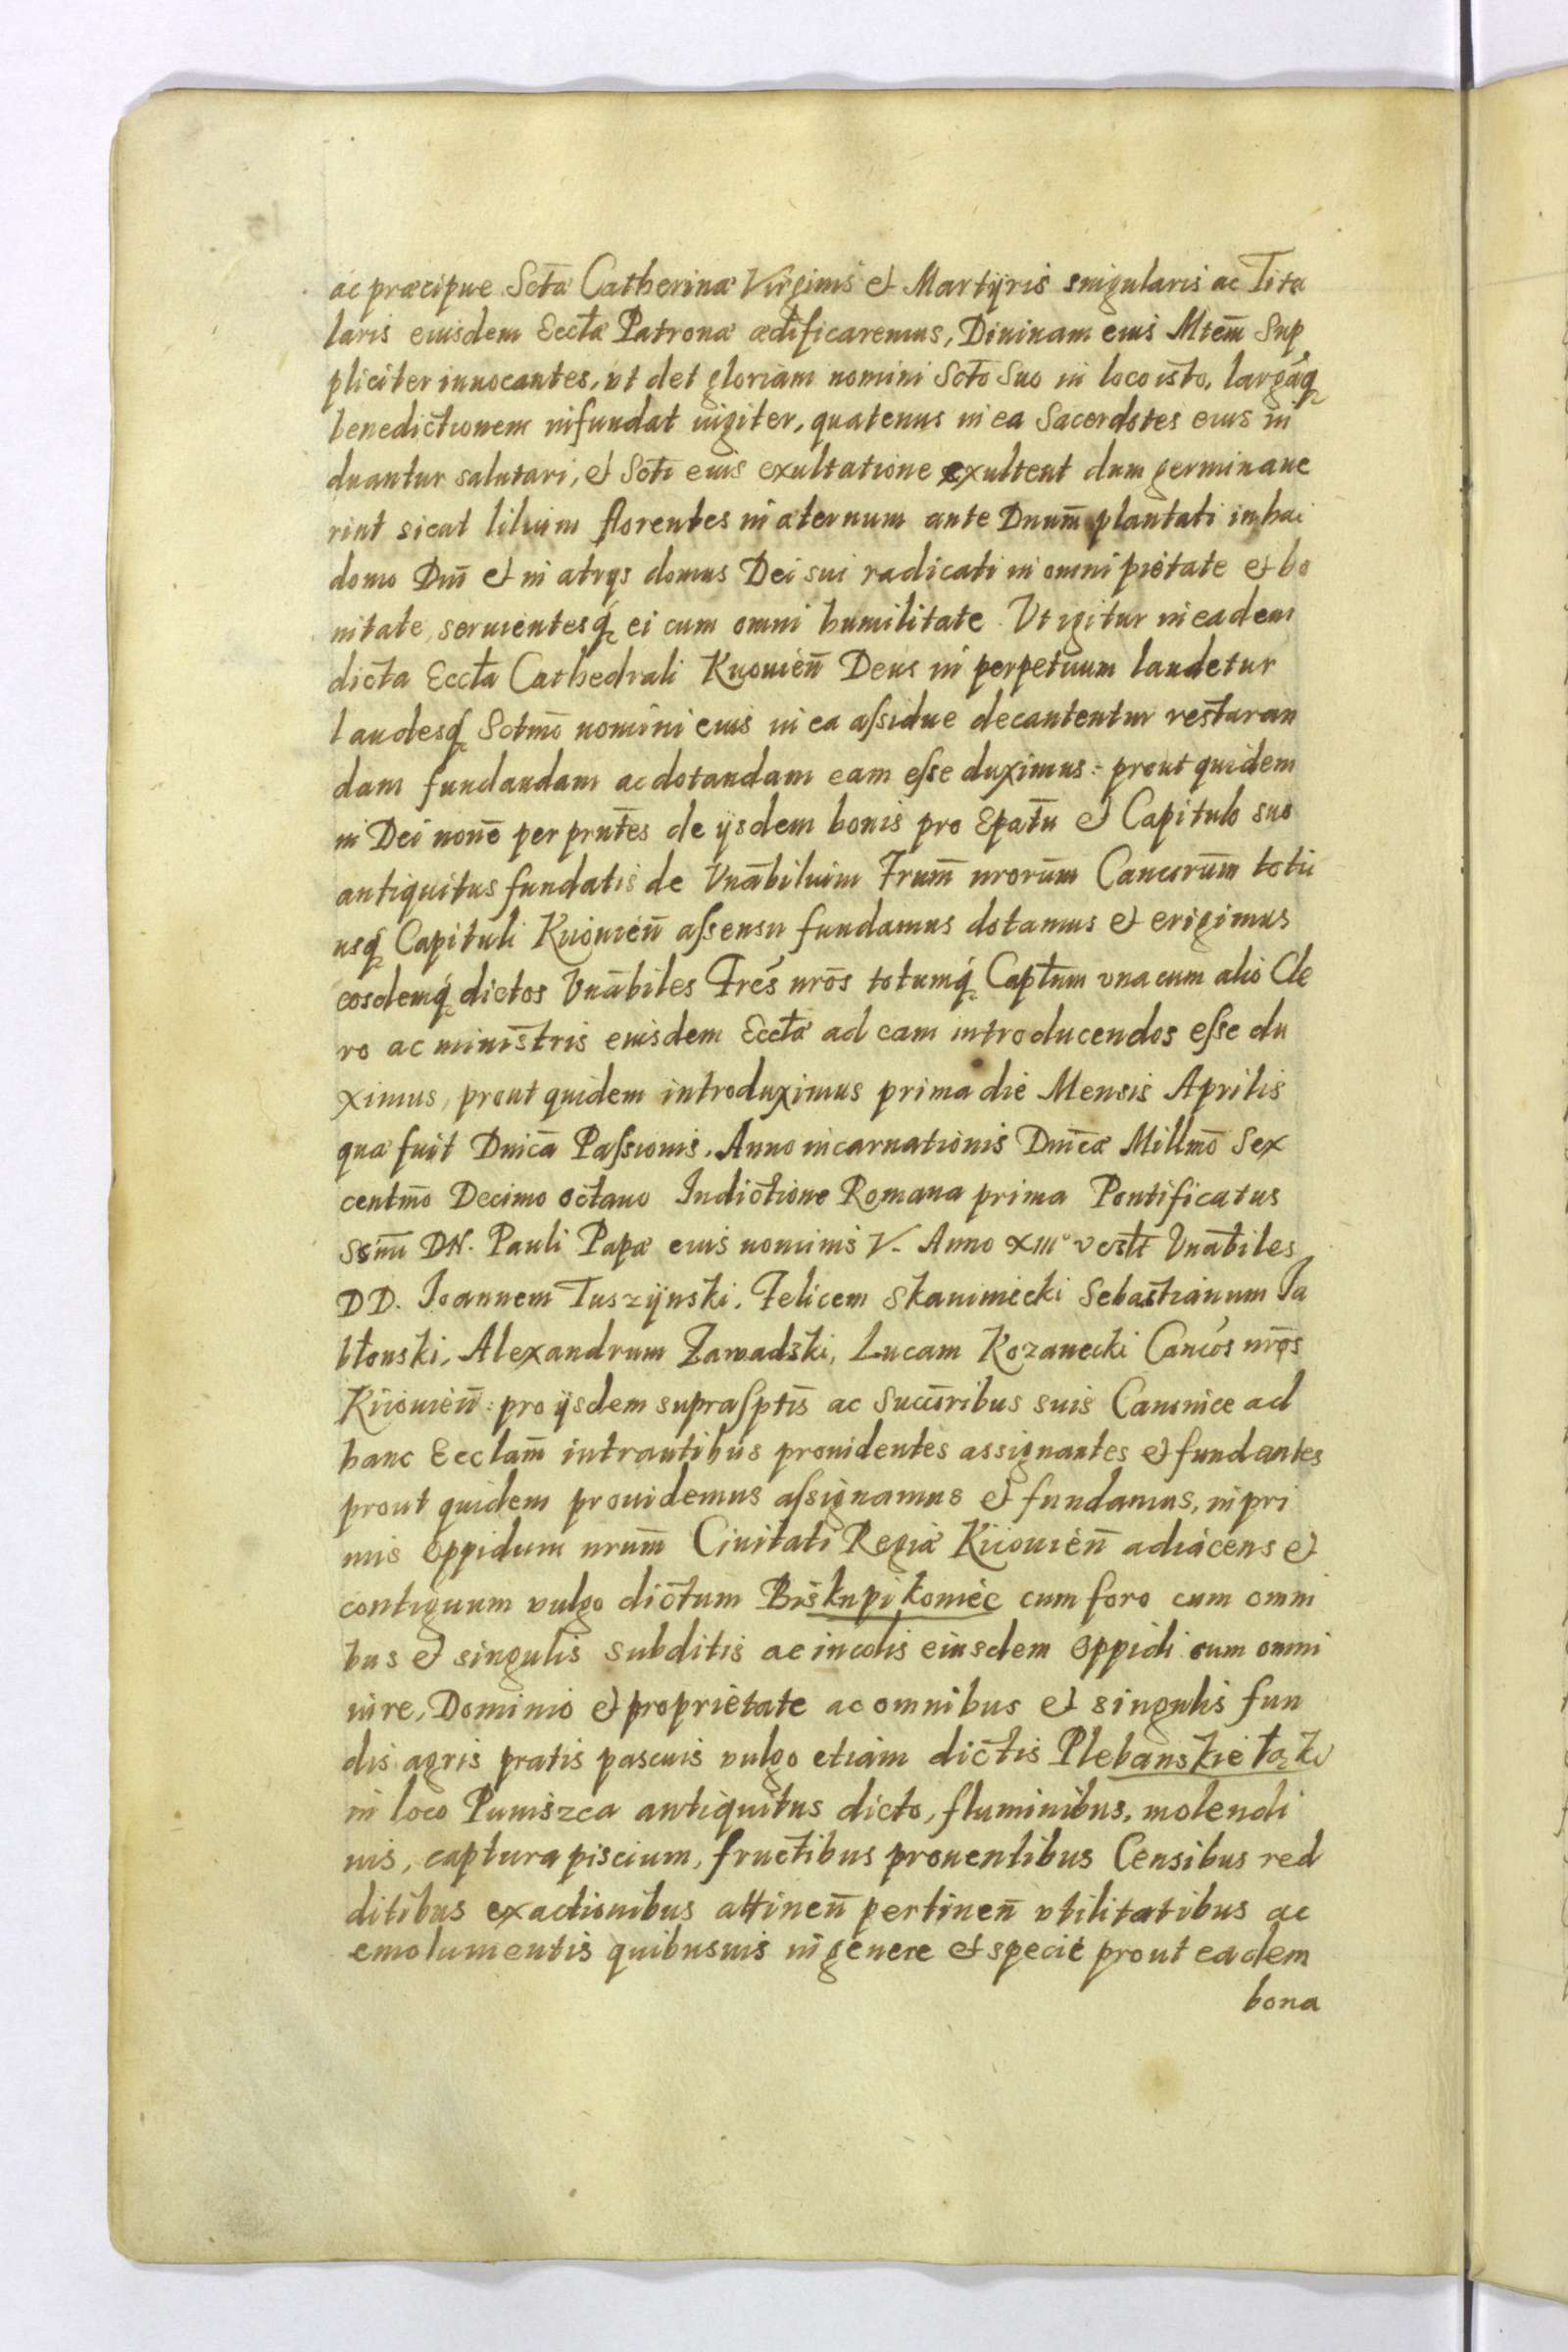 ac præcipue Sctæ Catherinæ Virginis et Martÿris singularis ac Titu
laris eiusdem Ecctæ Patronæ ædificaremus, Diuinam eius Mtem̄ Sup
pliciter inuocantes, vt det gloriam nomini Scto Suo in loco isto, largaq́
benedictionem infundat iugiter, quatenus in ea Sacerdotes eius in
duantur salutari, et Scti eius exultatione exultent dum germinaue
rint sicut lilium florentes in æternum ante Dnum̄ plantati in hac
domo Dnī et in atrys domus Dei sui radicati in omni pietate et bo
nitate, seruientesq́ ei cum omni humilitate. Vt igitur in eadem
dicta Eccta Cathedrali Kiiouien̄ Deus in perpetuum laudetur
laudesq́ Sctmō nomini eius in ea aſsidue decantentur restauran
dam fundandam ac dotandam eam eſse duximus: prout quidem
in Dei nonē per prntēs de ijsdem bonis pro Epat̄u et Capitulo suo
antiquitus fundatis de Vnābilium Frum̄ nrorūm Cancrum̄ toti
usq́ Capituli Kiiouien̄ aſsensu fundamus dotamus et erigimus
eosdemq́ dictos Vnābiles Frēs nrōs totumq́ Captum vna cum alio Cle
ro ac ministris eiusdem Ecctæ ad eam introducendos eſse du
ximus, prout quidem introduximus prima die Mensis Aprilis
quæ fuit Dnicā Paſsionis. Anno incarnationis Dnicæ Millmō Sex
centmō Decimo octauo Indictione Romana prima Pontificatus
Ssmī DN. Pauli Papæ eius nominis V. Anno XIIIº Vnābiles
DD. Ioannem Tuszÿnski, Felicem Skaminiecki Sebastianum Ja
błonski, Alexandrum Zawadski, Lucam Kozanecki Cancós nrōs
Kiiouien̄: pro ijsdem supraſptīs ac Succribus suis Canonice ad
hanc Ecclam̄ intrantibus prouidentes assignantes et fundantes
prout quidem prouidemus aſsignamus et fundamus, in pri
mis Oppidum nrum̄ Ciuitati Regiæ Kiiouien̄ adiacens et
contiguum vulgo dictum Biskupi koniec cum foro cum omni
bus et singulis subditis ac incolis eiusdem Oppidi cum omni
iure, Dominio et proprietate ac omnibus et singulis fun
dis agris pratis pascuis vulgo etiam dictis Plebanskie łąki
in loco Puniszca antiquitus dicto, fluminibus, molendi
nis, captura piscium, fructibus prouentibus Censibus red
ditibus exactionibus attinen̄ pertinen̄ vtilitatibus ac
emolumentis quibusuis in genere et specie prout eadem
bona